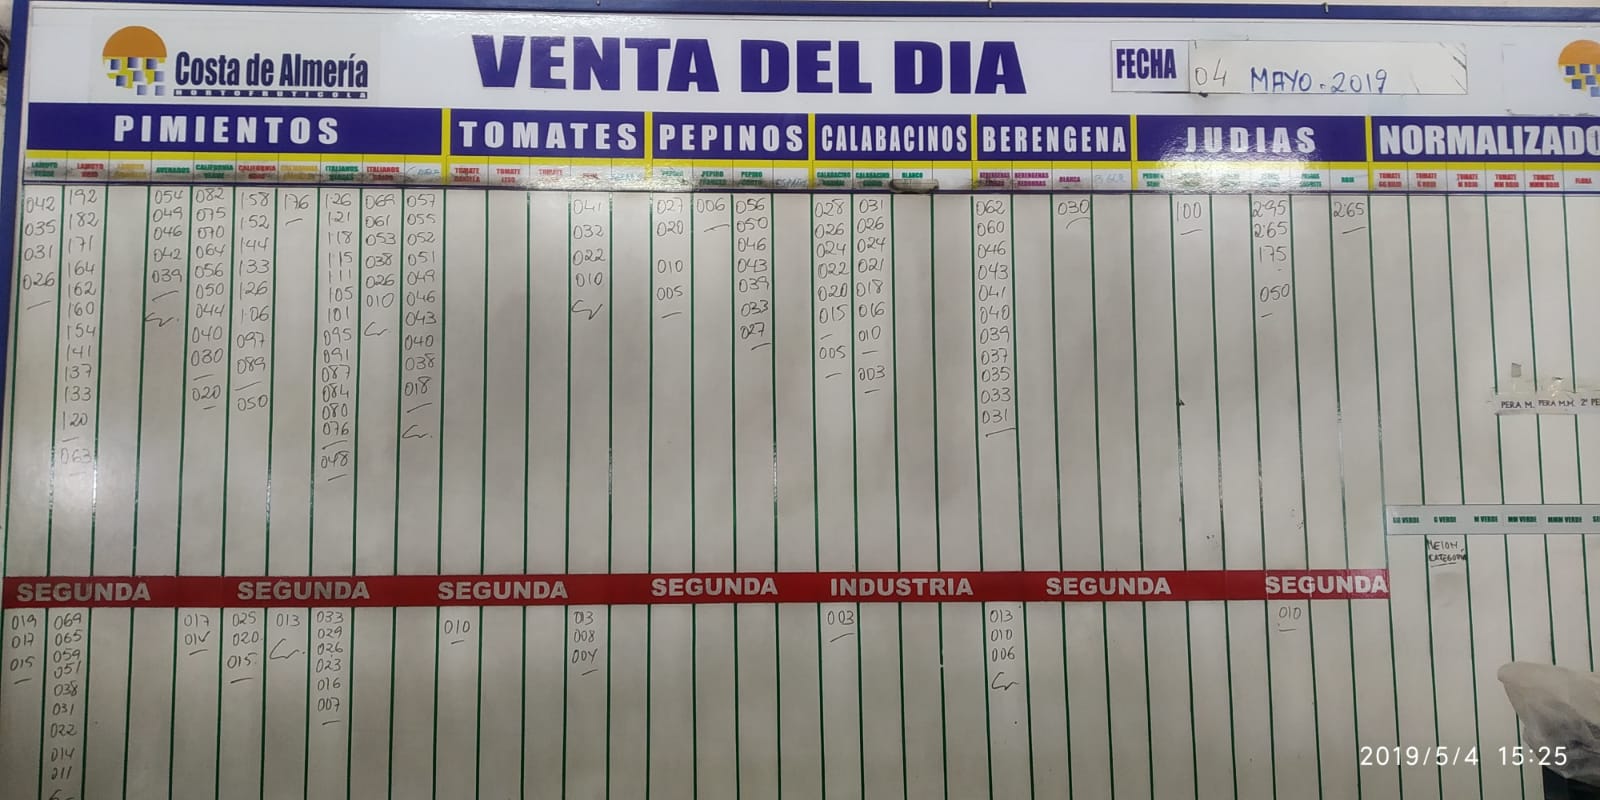 Costa de Almería
HORTOFRUTICOLA
VENTA DEL DIA
FECHA 04 MAYO-2019
PIMIENTOS TOMATES PEPINOS CALABACINOS BERENGENA JUDIAS NORMALIZADO
LAMUYO VERDE
042
035
031
026
LAMUYO ROJO
192
182
171
164
162
160
154
141
137
133
120
063
054
049
046
042
039
CALIFORNIA
082
075
070
064
056
050
044
040
030
020
CALIFORNIA
158
152
144
133
126
106
097
089
050
176
ITALIANOS
126
121
118
115
111
105
101
095
091
087
084
080
076
048
ITALIANOS
069
061
053
038
026
010
057
055
052
051
049
046
043
040
038
018
TOMATE
TOMATE
TOMATE
041
032
022
010
027
020
010
005
006
056
050
046
043
039
033
027
CALABACINO
028
026
024
022
020
015
005
CALABACINO
031
026
024
021
018
016
010
003
BLANCO
062
060
046
043
041
040
039
037
035
033
031
BERENGENAS REDONDAS
BLANCA
030
100
295
265
175
050
ROJA
265
TOMATE GG ROJO
TOMATE G ROJO
TOMATE M ROJO
TOMATE MM ROJO
TOMATE MMM ROJO
FLORA
PERA M. PERA M.M. 2ª PE
GG VERDE G VERDE M VERDE MM VERDE MMM VERDE
MELON
CATEGORIA
SEGUNDA SEGUNDA SEGUNDA SEGUNDA INDUSTRIA SEGUNDA SEGUNDA
019
017
015
069
065
059
051
038
031
022
014
011
017
014
025
020
015
013
033
029
026
023
016
007
010
013
008
004
003
013
010
006
010
2019/5/4 15:25